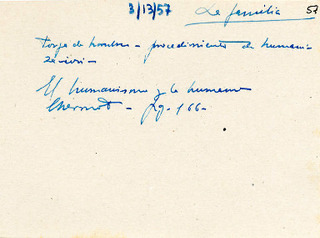 3/13/57 La familia 57
de hombre – procedimiento de humani-
zación –
El humanismo y lo humano
– pg. 166 –